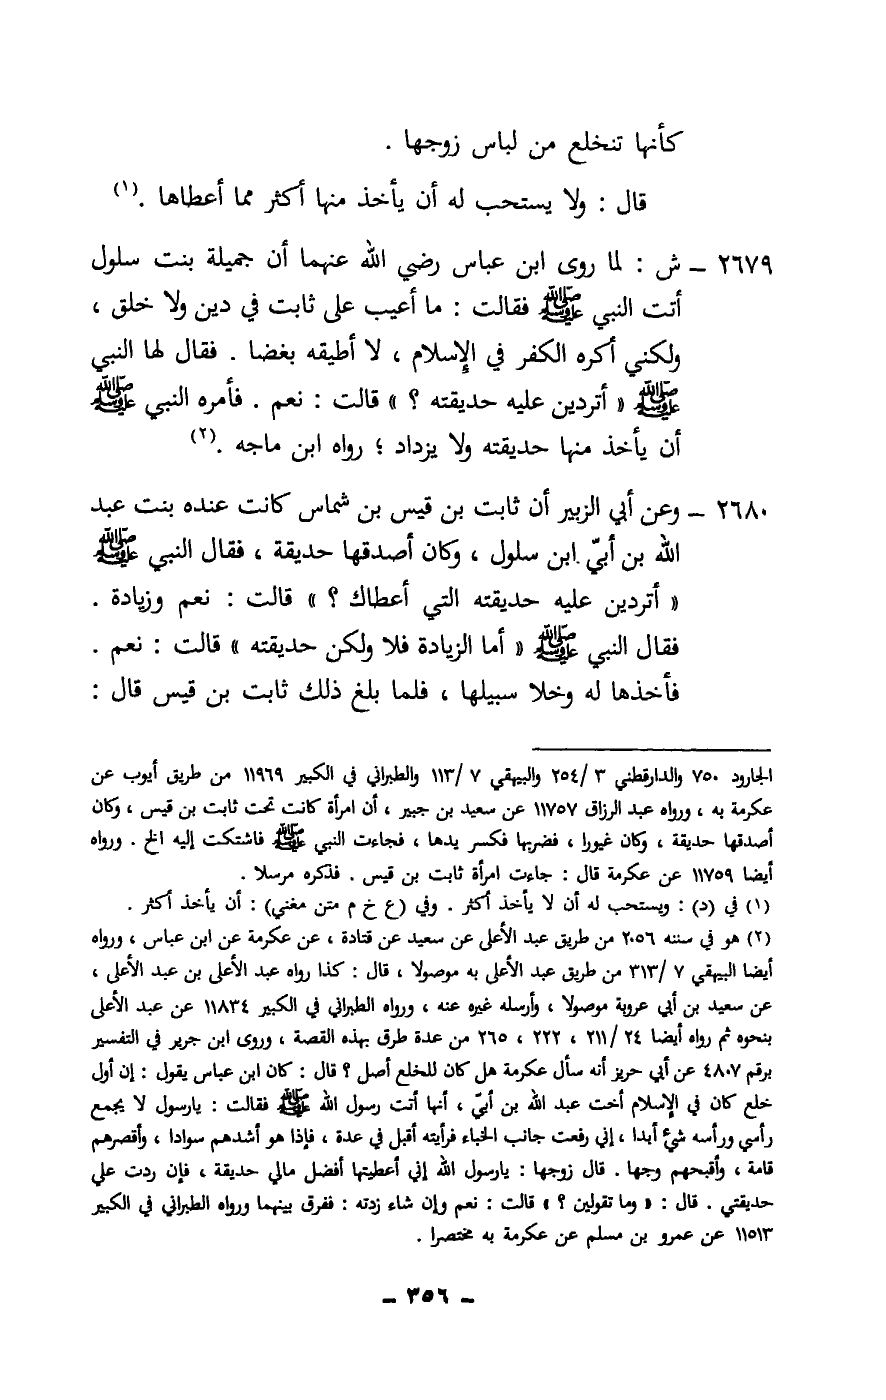 كأنها تنخلع من لباس زوجها .
قال : ولا يستحب له أن يأخذ منها أكثر مما أعطاها .(١)
٢٦٧٩ ــ ش : لما روى ابن عباس رضي الله عنهما أن جميلة بنت سلول
أتت النبي ﷺ فقالت : ما أعيب على ثابت في دين ولا خلق ،
ولكني أكره الكفر في الإسلام ، لا أطيقه بغضا . فقال لها النبي
ﷺ « أتردين عليه حديقته ؟ » قالت : نعم . فأمره النبي ﷺ
أن يأخذ منها حديقته ولا يزداد ؛ رواه ابن ماجه .(٢)
٢٦٨٠ ــ وعن أبي الزبير أن ثابت بن قيس بن شماس كانت عنده بنت عبد
الله بن أبيّ ابن سلول ، وكان أصدقها حديقة ، فقال النبي ﷺ
« أتردين عليه حديقته التي أعطاك ؟ » قالت : نعم وزيادة .
فقال النبي ﷺ « أما الزيادة فلا ولكن حديقته » قالت : نعم .
فأخذها له وخلا سبيلها ، فلما بلغ ذلك ثابت بن قيس قال :
الجارود ٧٥٠ والدارقطني ٣ /٢٥٤ والبيهقي ٧ /١١٣ والطبراني في الكبير ١١٩٦٩ من طريق أيوب عن
عكرمة به ، ورواه عبد الرزاق ١١٧٥٧ عن سعيد بن جبير ، أن امرأة كانت تحت ثابت بن قيس ، وكان
أصدقها حديقة ، وكان غيورا ، فضربها فكسر يدها ، فجاءت النبي ﷺ فاشتكت إليه الخ . ورواه
أيضا ١١٧٥٩ عن عكرمة قال : جاءت امرأة ثابت بن قيس . فذكره مرسلا .
(١) في (د) : ويستحب له أن لا يأخذ أكثر . وفي (ع خ م متن مغني) : أن يأخذ أكثر .
(٢) هو في سننه ٢٠٥٦ من طريق عبد الأعلى عن سعيد عن قتادة ، عن عكرمة عن ابن عباس ، ورواه
أيضا البيهقي ٧ /٣١٣ من طريق عبد الأعلى به موصولا ، قال : كذا رواه عبد الأعلى بن عبد الأعلى ،
عن سعيد بن أبي عروبة موصولا ، وأرسله غيره عنه ، ورواه الطبراني في الكبير ١١٨٣٤ عن عبد الأعلى
بنحوه ثم رواه أيضا ٢٤ /٢١١ ، ٢٢٢ ، ٢٦٥ من عدة طرق بهذه القصة ، وروى ابن جرير في التفسير
برقم ٤٨٠٧ عن أبي حريز أنه سأل عكرمة هل كان للخلع أصل ؟ قال : كان ابن عباس يقول : إن أول
خلع كان في الإسلام أخت عبد الله بن أبيّ ، أنها أتت رسول الله ﷺ فقالت : يارسول لا يجمع
رأسي ورأسه شئ أبدا ، إني رفعت جانب الخباء فرأيته أقبل في عدة ، فإذا هو أشدهم سوادا ، وأقصرهم
قامة ، وأقبحهم وجها . قال زوجها : يارسول الله إني أعطيتها أفضل مالي حديقة ، فإن ردت علي
حديقتي . قال : « وما تقولين ؟ » قالت : نعم وإن شاء زدته : ففرق بينهما ورواه الطبراني في الكبير
١١٥١٣ عن عمرو بن مسلم عن عكرمة به مختصرا .
ــ ٣٥٦ ــ